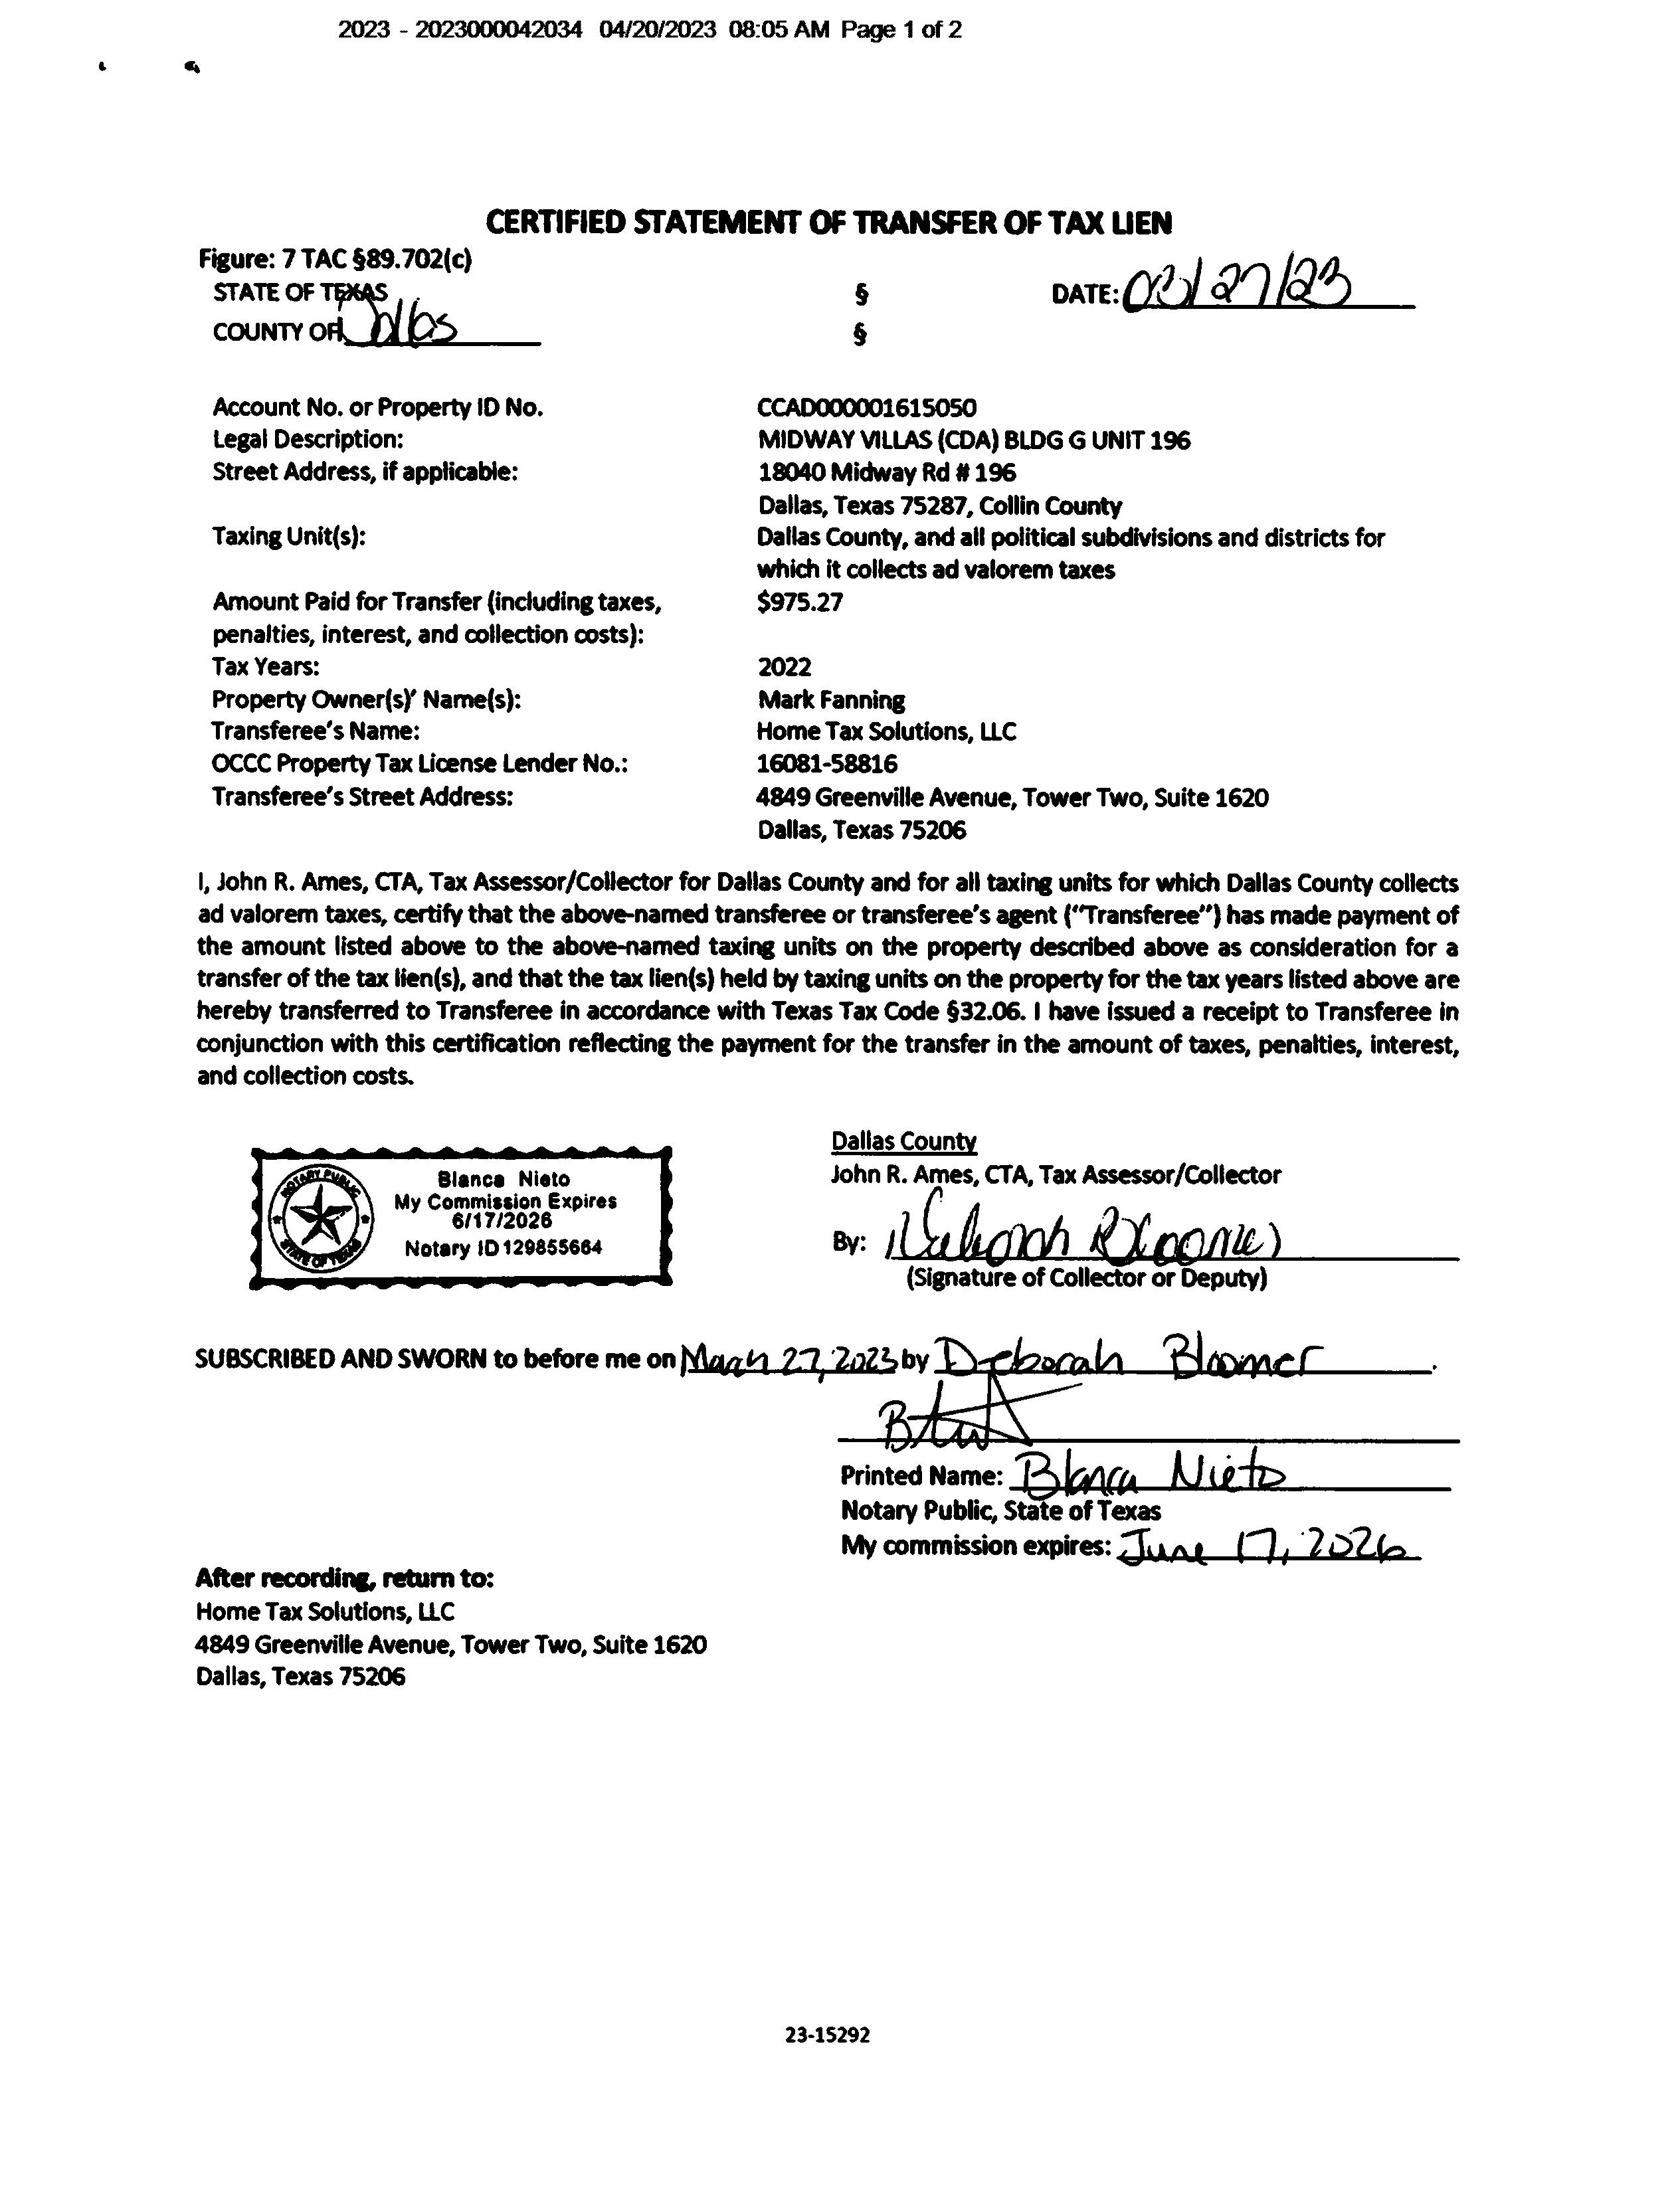 2023 - 2023000042034 04/20/2023 08:05 AM Page 1 of 2
CERTIFIED STATEMENT OF TRANSFER OF TAX LIEN
Figure: 7 TAC §89.702(c)
STATE OF TEXAS § DATE: 03/27/23
COUNTY OF Dallas §
Account No. or Property ID No. CCAD000001615050
Legal Description: MIDWAY VILLAS (CDA) BLDG G UNIT 196
Street Address, if applicable: 18040 Midway Rd # 196
Dallas, Texas 75287, Collin County
Taxing Unit(s): Dallas County, and all political subdivisions and districts for
which it collects ad valorem taxes
Amount Paid for Transfer (including taxes, $975.27
penalties, interest, and collection costs):
Tax Years: 2022
Property Owner(s)' Name(s): Mark Fanning
Transferee's Name: Home Tax Solutions, LLC
OCCC Property Tax License Lender No.: 16081-58816
Transferee's Street Address: 4849 Greenville Avenue, Tower Two, Suite 1620
Dallas, Texas 75206
I, John R. Ames, CTA, Tax Assessor/Collector for Dallas County and for all taxing units for which Dallas County collects
ad valorem taxes, certify that the above-named transferee or transferee's agent ("Transferee") has made payment of
the amount listed above to the above-named taxing units on the property described above as consideration for a
transfer of the tax lien(s), and that the tax lien(s) held by taxing units on the property for the tax years listed above are
hereby transferred to Transferee in accordance with Texas Tax Code §32.06. I have issued a receipt to Transferee in
conjunction with this certification reflecting the payment for the transfer in the amount of taxes, penalties, interest,
and collection costs.
Dallas County
John R. Ames, CTA, Tax Assessor/Collector
By: Deborah Bloomer
(Signature of Collector or Deputy)
NOTARY PUBLIC
STATE OF TEXAS
Blanca Nieto
My Commission Expires
6/17/2026
Notary ID 129855664
SUBSCRIBED AND SWORN to before me on March 27, 2023 by Deborah Bloomer.
Printed Name: Blanca Nieto
Notary Public, State of Texas
My commission expires: June 17, 2026
After recording, return to:
Home Tax Solutions, LLC
4849 Greenville Avenue, Tower Two, Suite 1620
Dallas, Texas 75206
23-15292